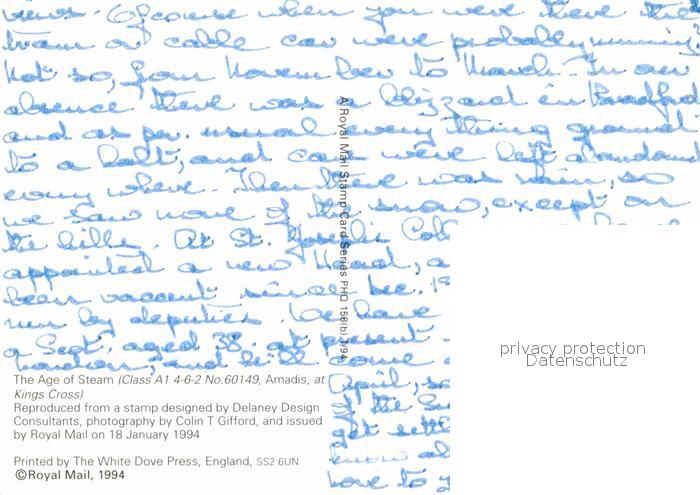 views. Of course when you were there the
tram or cable car were probably running
not so, from November to March. In our
absence there was a blizzard in Bradford
and as per. usual every thing ground
to a halt, and cars were left abandoned
every where. Then there was rain, so
we saw none of the snow, except on
the hills. At St. Joseph's Col
appointed a new Head, a
been vacent since Dec.
run by deputies. We have
a Sept. aged 38. at present
and he'll come
April, so
of the Su
get settl
know al
have to
A Royal Mail Stamp Card Series PHQ 158(b) 1/94
The Age of Steam (Class A1 4-6-2 No.60149, Amadis, at
Kings Cross)
Reproduced from a stamp designed by Delaney Design
Consultants, photography by Colin T Gifford, and issued
by Royal Mail on 18 January 1994
Printed by The White Dove Press, England, SS2 6UN
©Royal Mail, 1994
privacy protection
Datenschutz